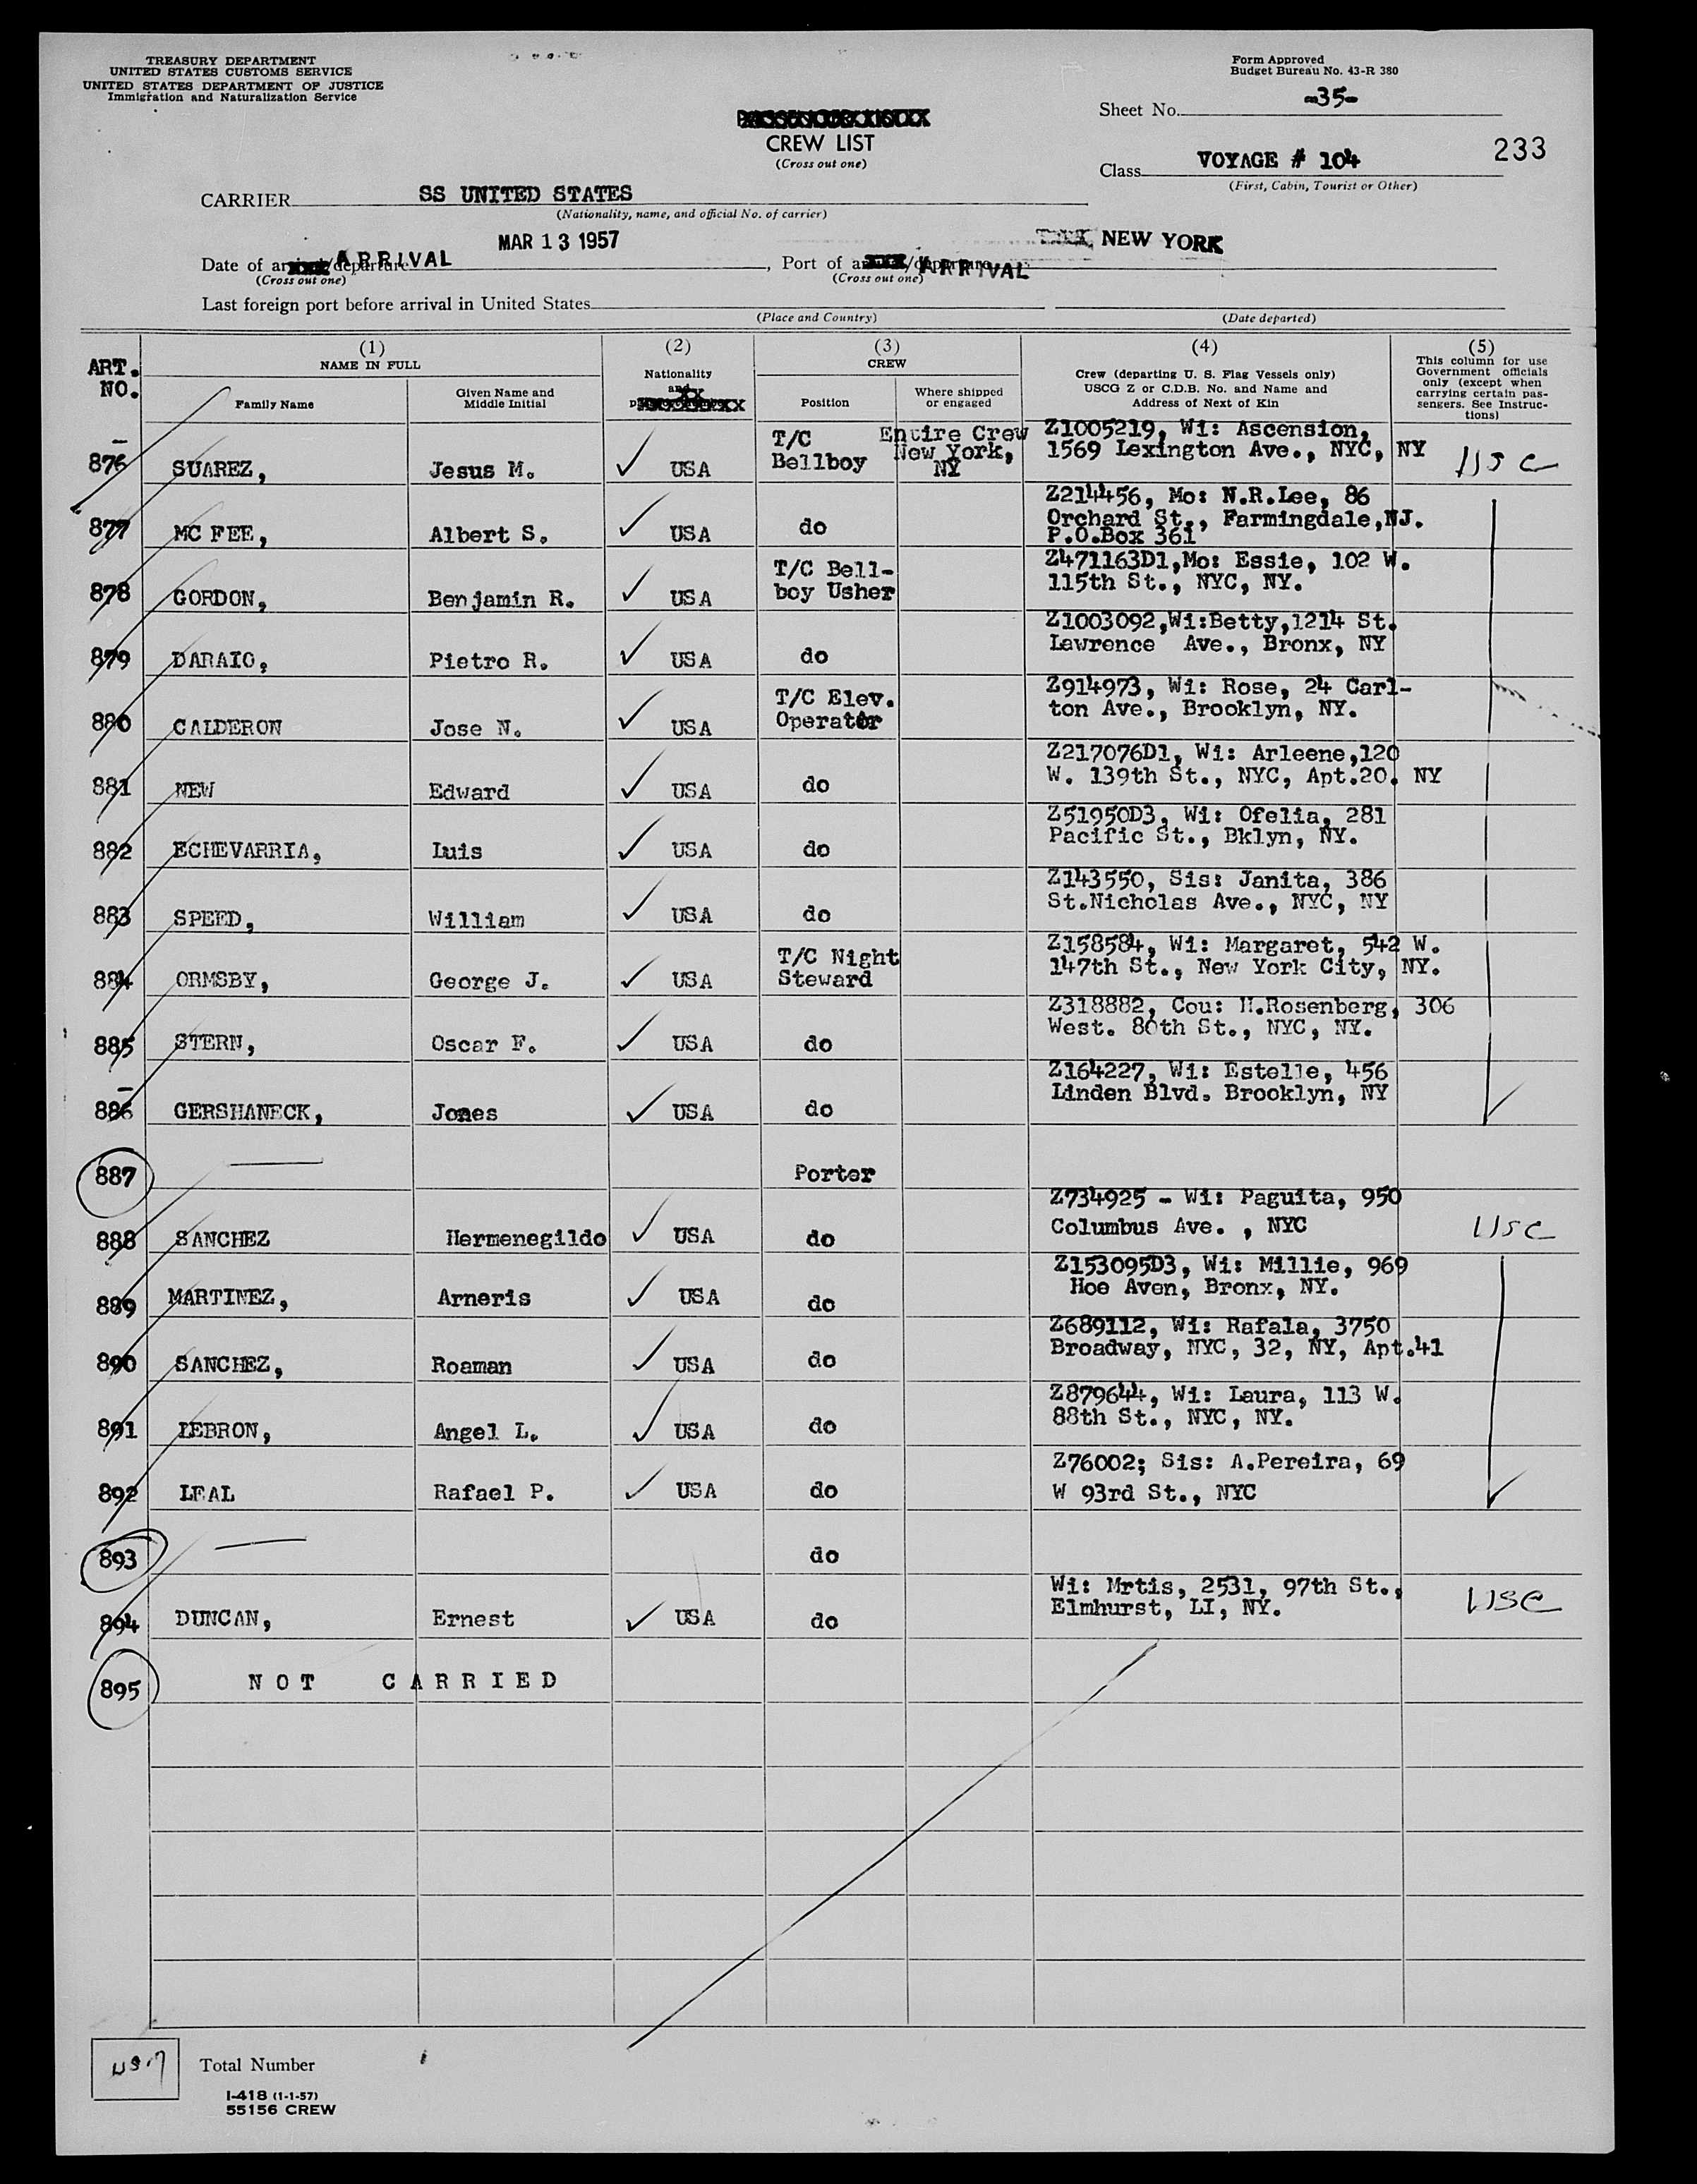 TREASURY DEPARTMENT
UNITED STATES CUSTOMS SERVICE
UNITED STATES DEPARTMENT OF JUSTICE
Immigration and Naturalization Service
Form Approved
Budget Bureau No. 43-R 380
Sheet No. -35-
CREW LIST
(Cross out one)
233
Class VOYAGE # 104
(First, Cabin, Tourist or Other)
CARRIER SS UNITED STATES
(Nationality, name, and official No. of carrier)
MAR 13 1957 NEW YORK
Date of ARRIVAL, Port of ARRIVAL
(Cross out one) (Cross out one)
Last foreign port before arrival in United States
(Place and Country) (Date departed)
ART. NO. (1) NAME IN FULL Family Name Given Name and Middle Initial (2) Nationality and (3) CREW Position Where shipped or engaged (4) Crew (departing U. S. Flag Vessels only) USCG Z or C.D.B. No. and Name and Address of Next of Kin (5) This column for use Government officials only (except when carrying certain passengers. See Instructions)
876 SUAREZ, Jesus M. USA T/C Bellboy Entire Crew New York, NY Z1005219, Wi: Ascension, 1569 Lexington Ave., NYC, NY USC
877 MC FEE, Albert S. USA do Z214456, Mo: N.R.Lee, 86 Orchard St., Farmingdale,NJ. P.O.Box 361
878 GORDON, Benjamin R. USA T/C Bell-boy Usher Z471163D1,Mo: Essie, 102 W. 115th St., NYC, NY.
879 DARAIO, Pietro R. USA do Z1003092,Wi:Betty,1214 St. Lawrence Ave., Bronx, NY
880 CALDERON Jose N. USA T/C Elev. Operator Z914973, Wi: Rose, 24 Carl-ton Ave., Brooklyn, NY.
881 NEW Edward USA do Z217076D1, Wi: Arleene,120 W. 139th St., NYC, Apt.20. NY
882 ECHEVARRIA, Luis USA do Z51950D3, Wi: Ofelia, 281 Pacific St., Bklyn, NY.
883 SPEED, William USA do Z143550, Sis: Janita, 386 St.Nicholas Ave., NYC, NY
884 ORMSBY, George J. USA T/C Night Steward Z158584, Wi: Margaret, 542 W. 147th St., New York City, NY.
885 STERN, Oscar F. USA do Z318882, Cou: H.Rosenberg, 306 West. 80th St., NYC, NY.
886 GERSHANECK, Jones USA do Z164227, Wi: Estelle, 456 Linden Blvd. Brooklyn, NY
887 Porter
888 SANCHEZ Hermenegildo USA do Z734925 - Wi: Paguita, 950 Columbus Ave. , NYC USC
889 MARTINEZ, Arneris USA do Z153095D3, Wi: Millie, 969 Hoe Aven, Bronx, NY.
890 SANCHEZ, Roaman USA do Z689112, Wi: Rafala, 3750 Broadway, NYC, 32, NY, Apt.41
891 LEBRON, Angel L. USA do Z879644, Wi: Laura, 113 W. 88th St., NYC, NY.
892 LEAL Rafael P. USA do Z76002; Sis: A.Pereira, 69 W 93rd St., NYC
893 do
894 DUNCAN, Ernest USA do Wi: Mrtis, 2531, 97th St., Elmhurst, LI, NY. USC
895 NOT CARRIED
Total Number
I-418 (1-1-57)
55156 CREW